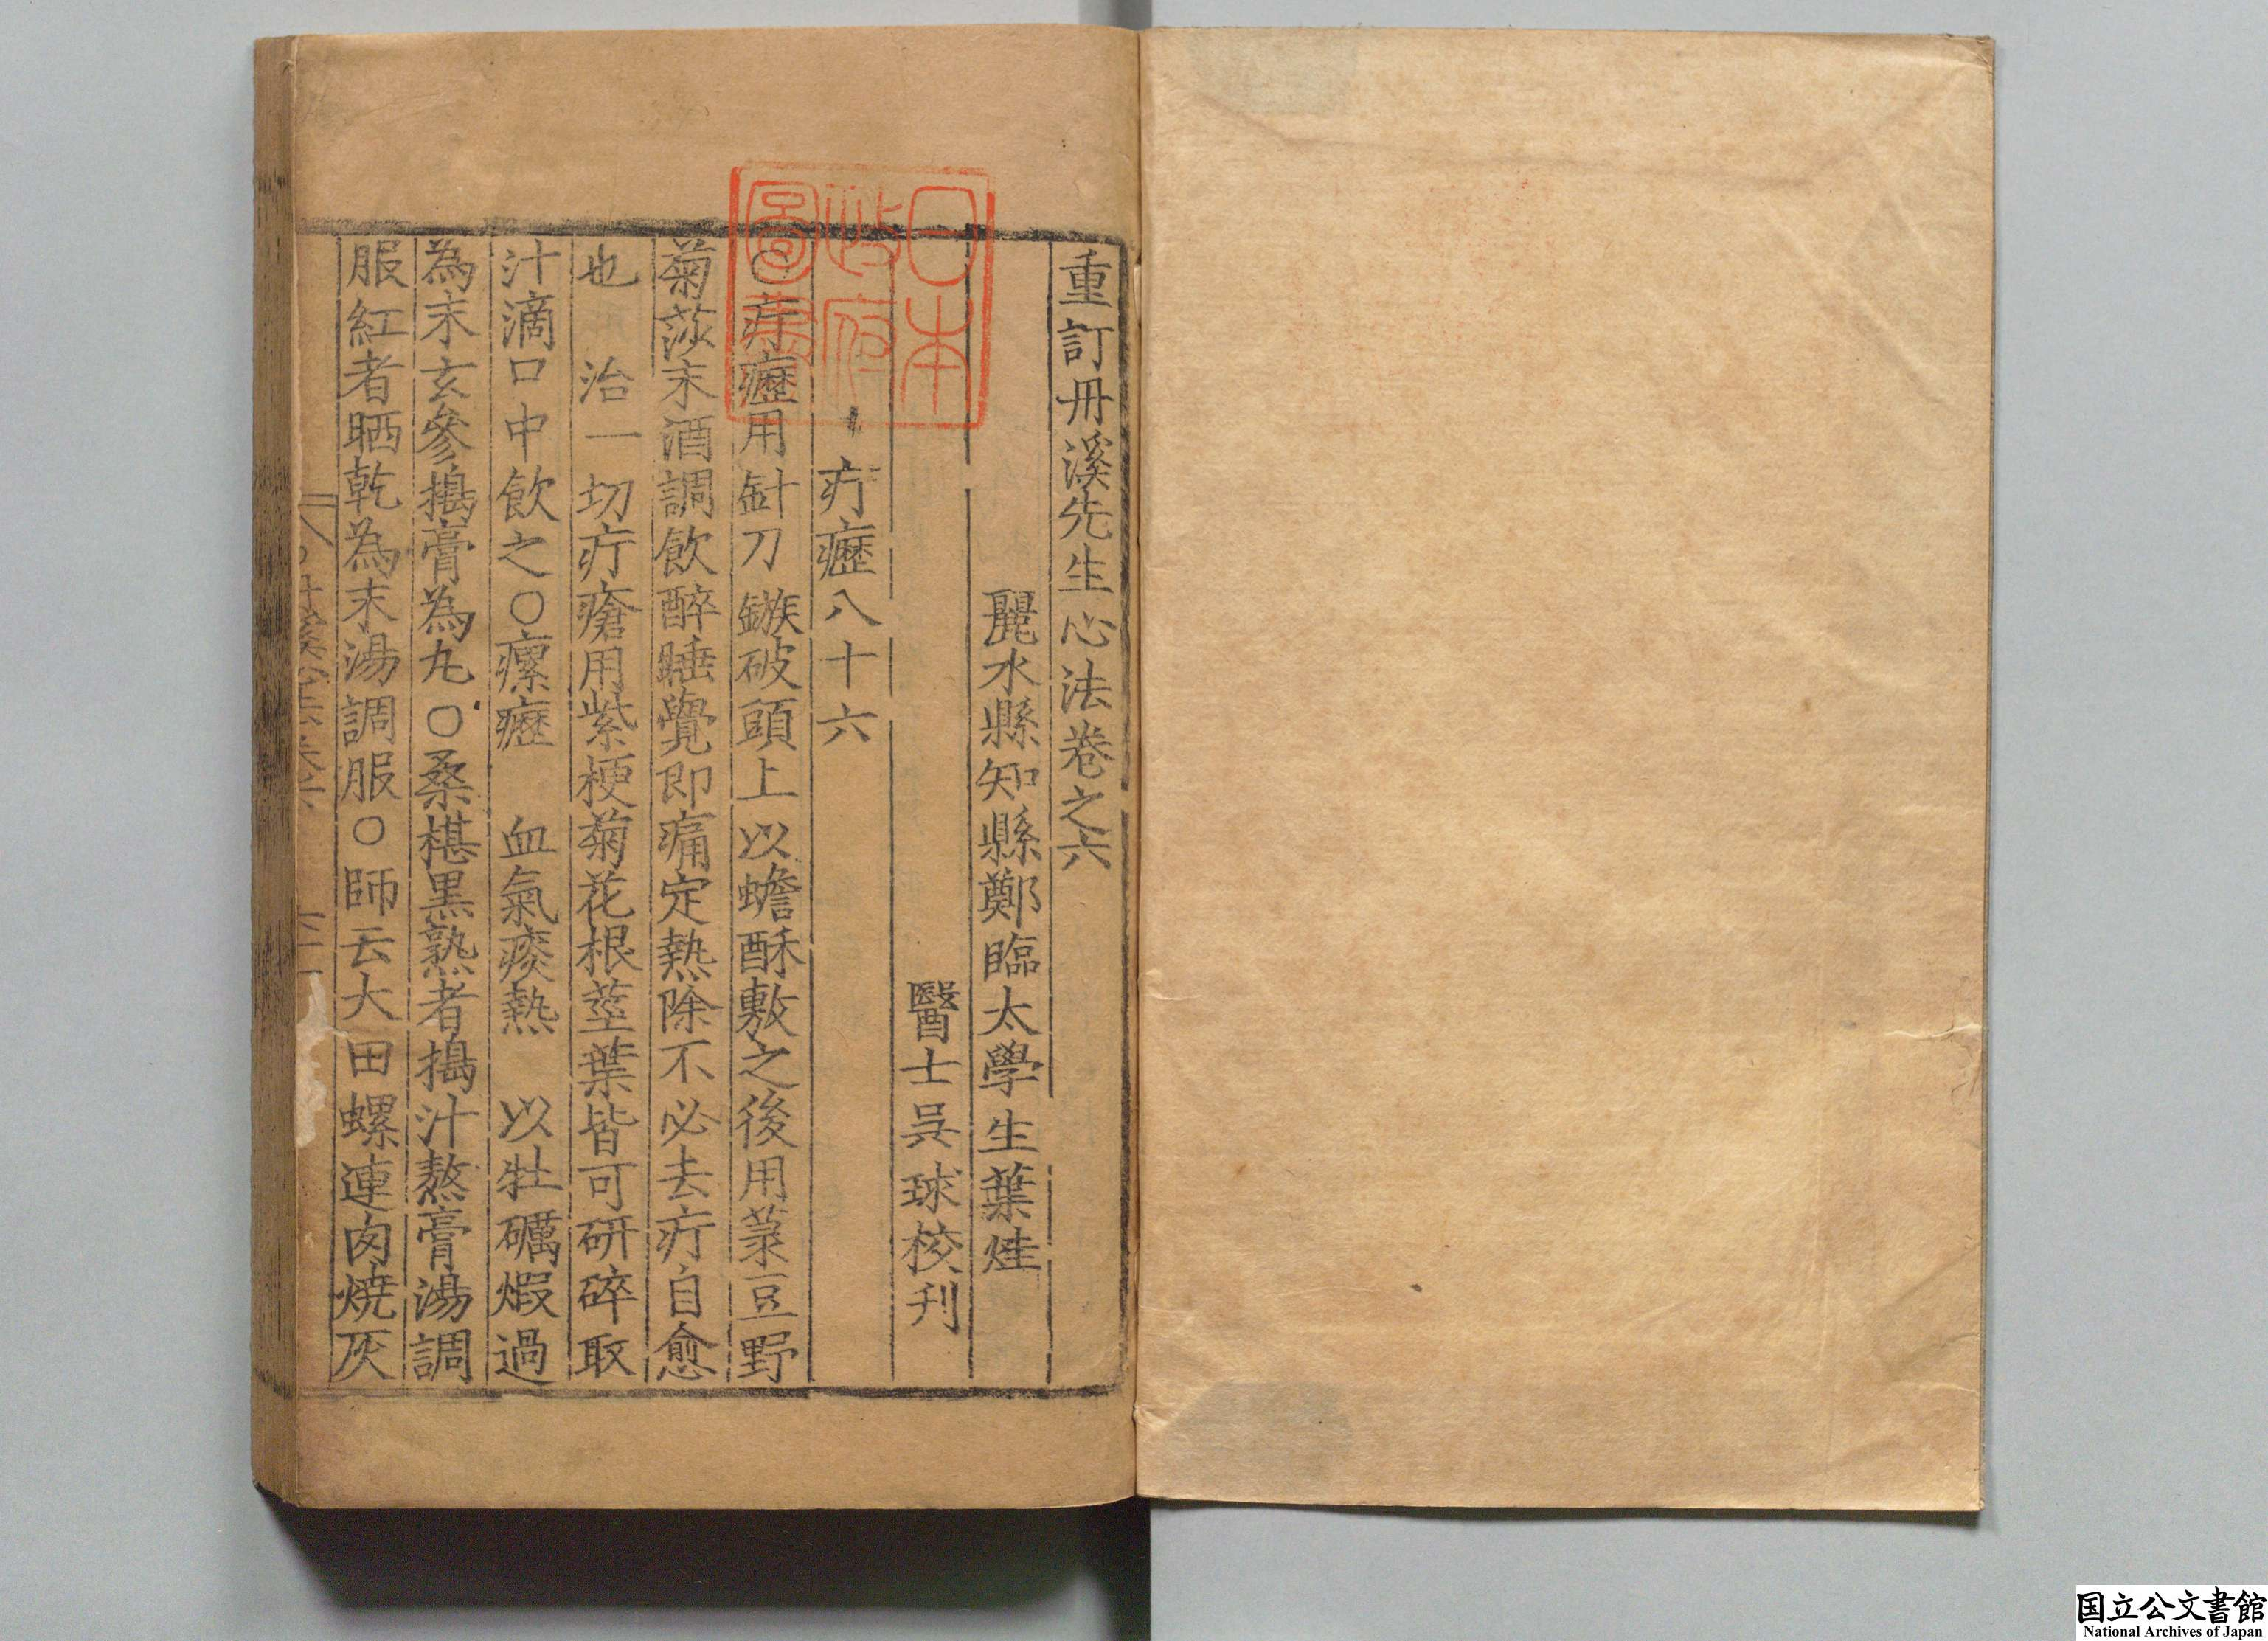 重訂丹溪先生心法卷之六
麗水縣知縣鄭臨太學生葉烓
醫士吴球校刋
疔癧八十六
○疔癧用針刀鏃破頭上以蟾酥敷之後用菉豆野
菊莎末酒調飲醉睡覺即痛定熱除不必去疔自愈
也 治一切疔瘡用紫梗菊花根莖葉皆可研碎取
汁滴口中飲之○瘰癧 血氣痰熱 以牡礪煆過
為末玄參搗膏為丸○桑椹黒熟者搗汁熬膏湯調
服紅者晒乾為末湯調服○師云大田螺連肉燒灰
日本
政府
圖書
国立公文書館
National Archives of Japan